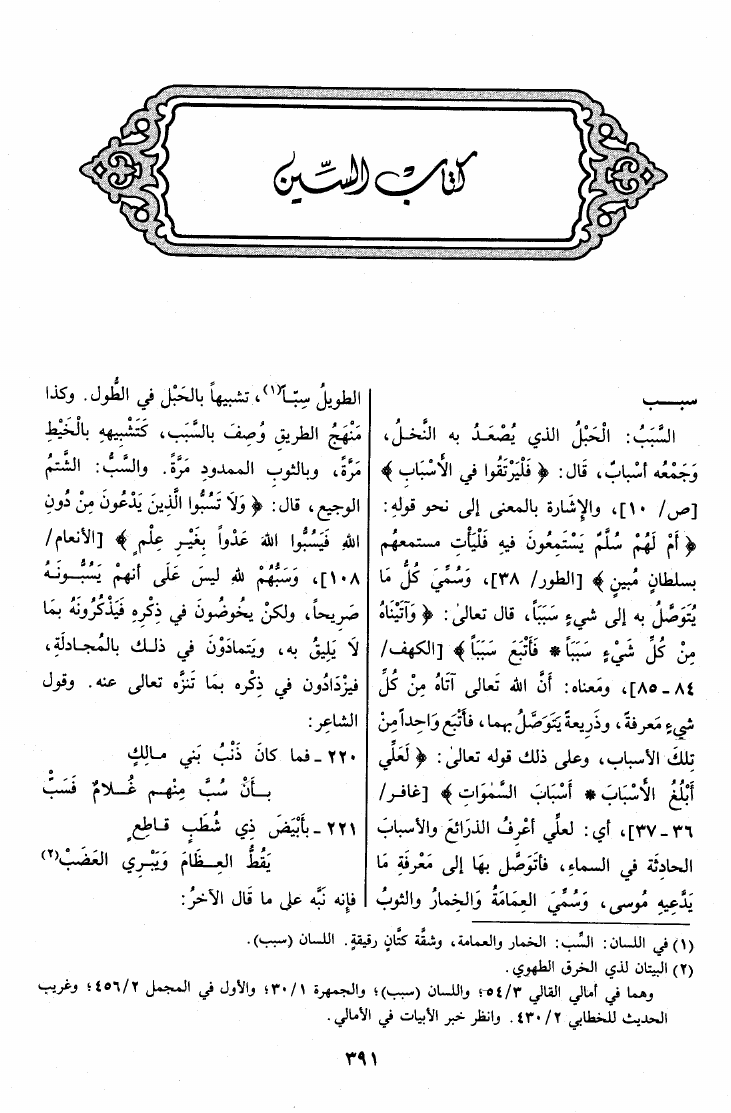 كتاب السّين
سبب
السَّبَبُ: الْحَبْلُ الذي يُصْعَدُ به النَّخلُ،
وَجَمْعُه أسْبابٌ، قال: ﴿ فَلْيَرْتَقُوا في الأَسْبَابِ ﴾
[ص/ ١٠]، والإشارة بالمعنى إلى نحو قولهِ:
﴿ أَمْ لَهُمْ سُلَّمٌ يَسْتَمِعُونَ فيهِ فَلْيَأْتِ مستمعهم
بسلطانٍ مُبينٍ ﴾ [الطور/ ٣٨]، وَسُمِّيَ كُلُّ مَا
يُتَوَصَّلُ به إلى شيءٍ سَبَبَاً، قال تعالىٰ: ﴿ وَآتَيْنَاهُ
مِنْ كُلِّ شَيْءٍ سَبَبَاً * فَأَتْبَعَ سَبَبَاً ﴾ [الكهف/
٨٤ - ٨٥]، ومَعناه: أَنَّ الله تَعالى آتَاهُ مِنْ كُلِّ
شيءٍ مَعرفة، وذريعةً يَتَوَصَّلُ بهما، فأَتْبَعَ وَاحداً مِنْ
تِلكَ الأسباب، وعلى ذلك قوله تعالىٰ: ﴿ لَعَلِّي
أَبْلُغُ الأَسْبَابَ * أَسْبَابَ السَّمٰوَاتِ ﴾ [غافر/
٣٦ - ٣٧]، أي: لعلِّي أعْرِفُ الذرائعَ والأسبابَ
الحادِثَة في السماءِ، فأتَوَصَّل بهَا إلى مَعْرِفَةِ مَا
يَدَّعِيهِ مُوسى، وَسُمِّيَ العِمَامَةُ وَالخِمارُ والثوبُ
الطويلُ سِبّاً(١)، تشبيهاً بالحَبْل في الطُّول. وكذا
مَنْهَجُ الطريقِ وُصِفَ بالسَّبَب، كَتَشْبِيههِ بالْخَيْطِ
مَرَّة، وبالثوبِ الممدودِ مَرَّةً. والسَّبُّ: الشَّتمُ
الوجيع، قال: ﴿ وَلَا تَسُبُّوا الَّذِينَ يَدْعُونَ مِنْ دُونِ
اللهِ فَيَسُبُّوا اللهَ عَدْواً بِغَيْرِ عِلْمٍ ﴾ [الأنعام/
١٠٨]، وَسَبُّهُمْ للهِ ليسَ عَلَى أنهمْ يَسُبُّونَهُ
صَرِيحاً، ولكنْ يخُوضُونَ في ذِكْرِهِ فَيَذْكُرُونَهُ بمَا
لَا يَلِيقُ به، ويَتمادَوْنَ في ذلك بالمُجادلَةِ،
فيزْدَادُون في ذِكْره بمَا تَنزَّه تعالى عنه. وقول
الشاعِر:
٢٢٠ - فما كانَ ذَنْبُ بَني مالِكٍ
بأنْ سُبَّ مِنْهم غُلامٌ فَسَبَّ
٢٢١ - بأَبْيَضَ ذِي شُطَبٍ قاطِعٍ
يَقُطُّ العِظَامَ وَيَبْري العَصَبْ(٢)
فإنه نَبَّه على ما قَال الآخرُ:
(١) في اللسان: السِّب: الخمار والعمامة، وشقَّة كتَّانٍ رقيقةٍ. اللسان (سبب).
(٢) البيتان لذي الخرق الطهوي.
وهما في أمالي القالي ٥٤/٣؛ واللسان (سبب)؛ والجمهرة ٣٠/١؛ والأول في المجمل ٤٥٦/٢؛ وغريب
الحديث للخطابي ٤٣٠/٢. وانظر خبر الأبيات في الأمالي.
٣٩١